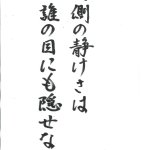 側の静けさは
誰の目にも隠せな